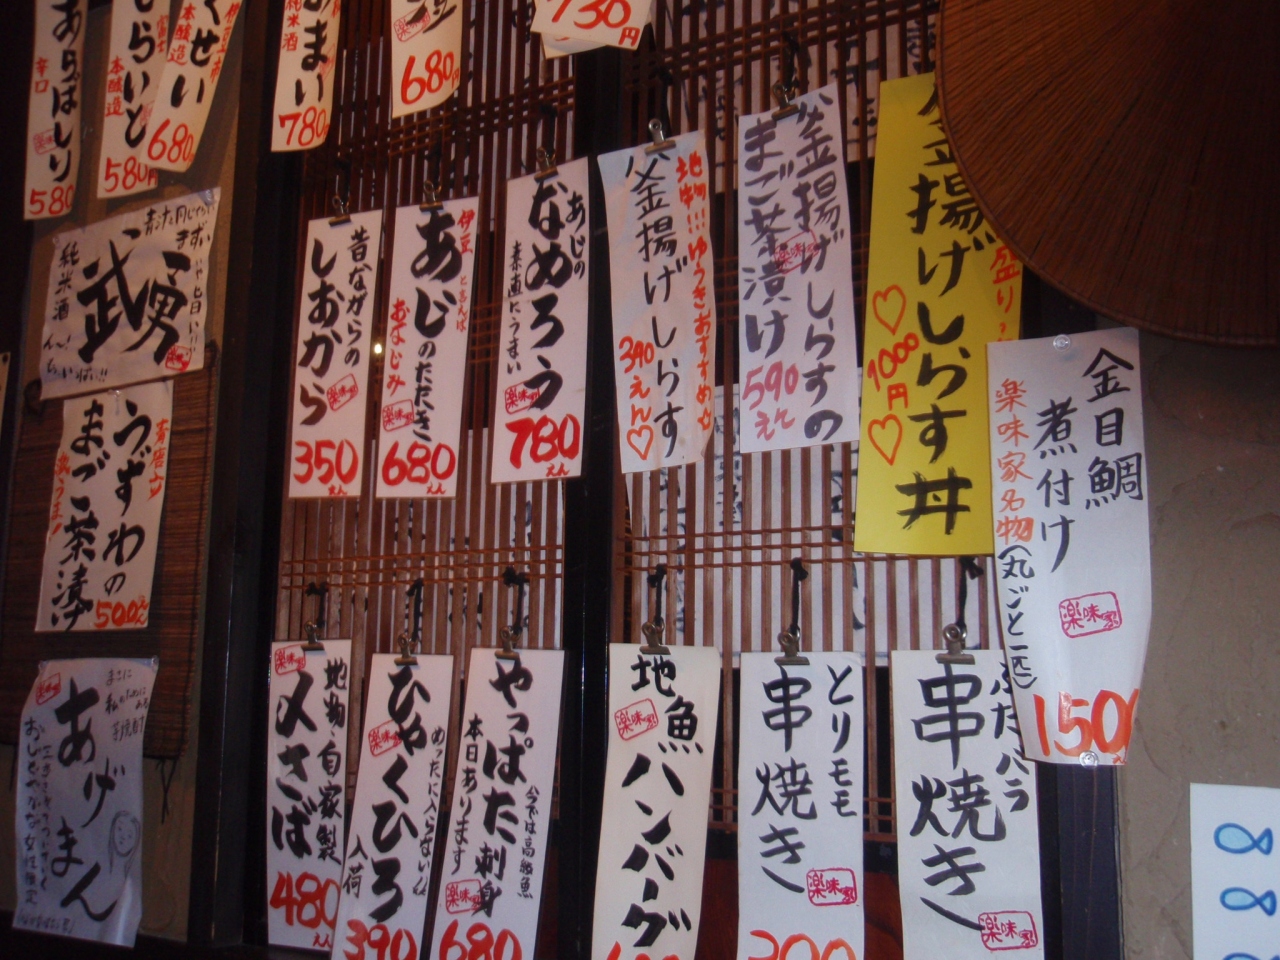 あらばしり
辛口
580
しらいと
本醸造
580円
くせい
本醸造
680
あまい
純米酒
780
680
730円
武勇
純米酒
うずわの
まご茶漬
500
あげまん
昔ながらの
しおから
楽味家
350
えん
伊豆
あじのたたき
おなじみ
楽味家
680
えん
あじの
なめろう
素直にうまい
楽味家
780
えん
地物!!!ゆうきおすすめ☆
釜揚げしらす
390えん♡
釜揚げしらすの
まご茶漬け
楽味家
590えん
釜揚げしらす丼
盛り
♡1000円♡
金目鯛
煮付け
楽味家名物
(丸ごと一匹)
楽味家
150
楽味家
地物・自家製
〆さば
480
えん
ひゃくひろ
めったに入らない
入荷
楽味家
390
やっぱた刺身
本日あります
楽味家
680
地魚ハンバーグ
楽味家
とりモモ
串焼き
楽味家
300
ぶたバラ
串焼き
楽味家